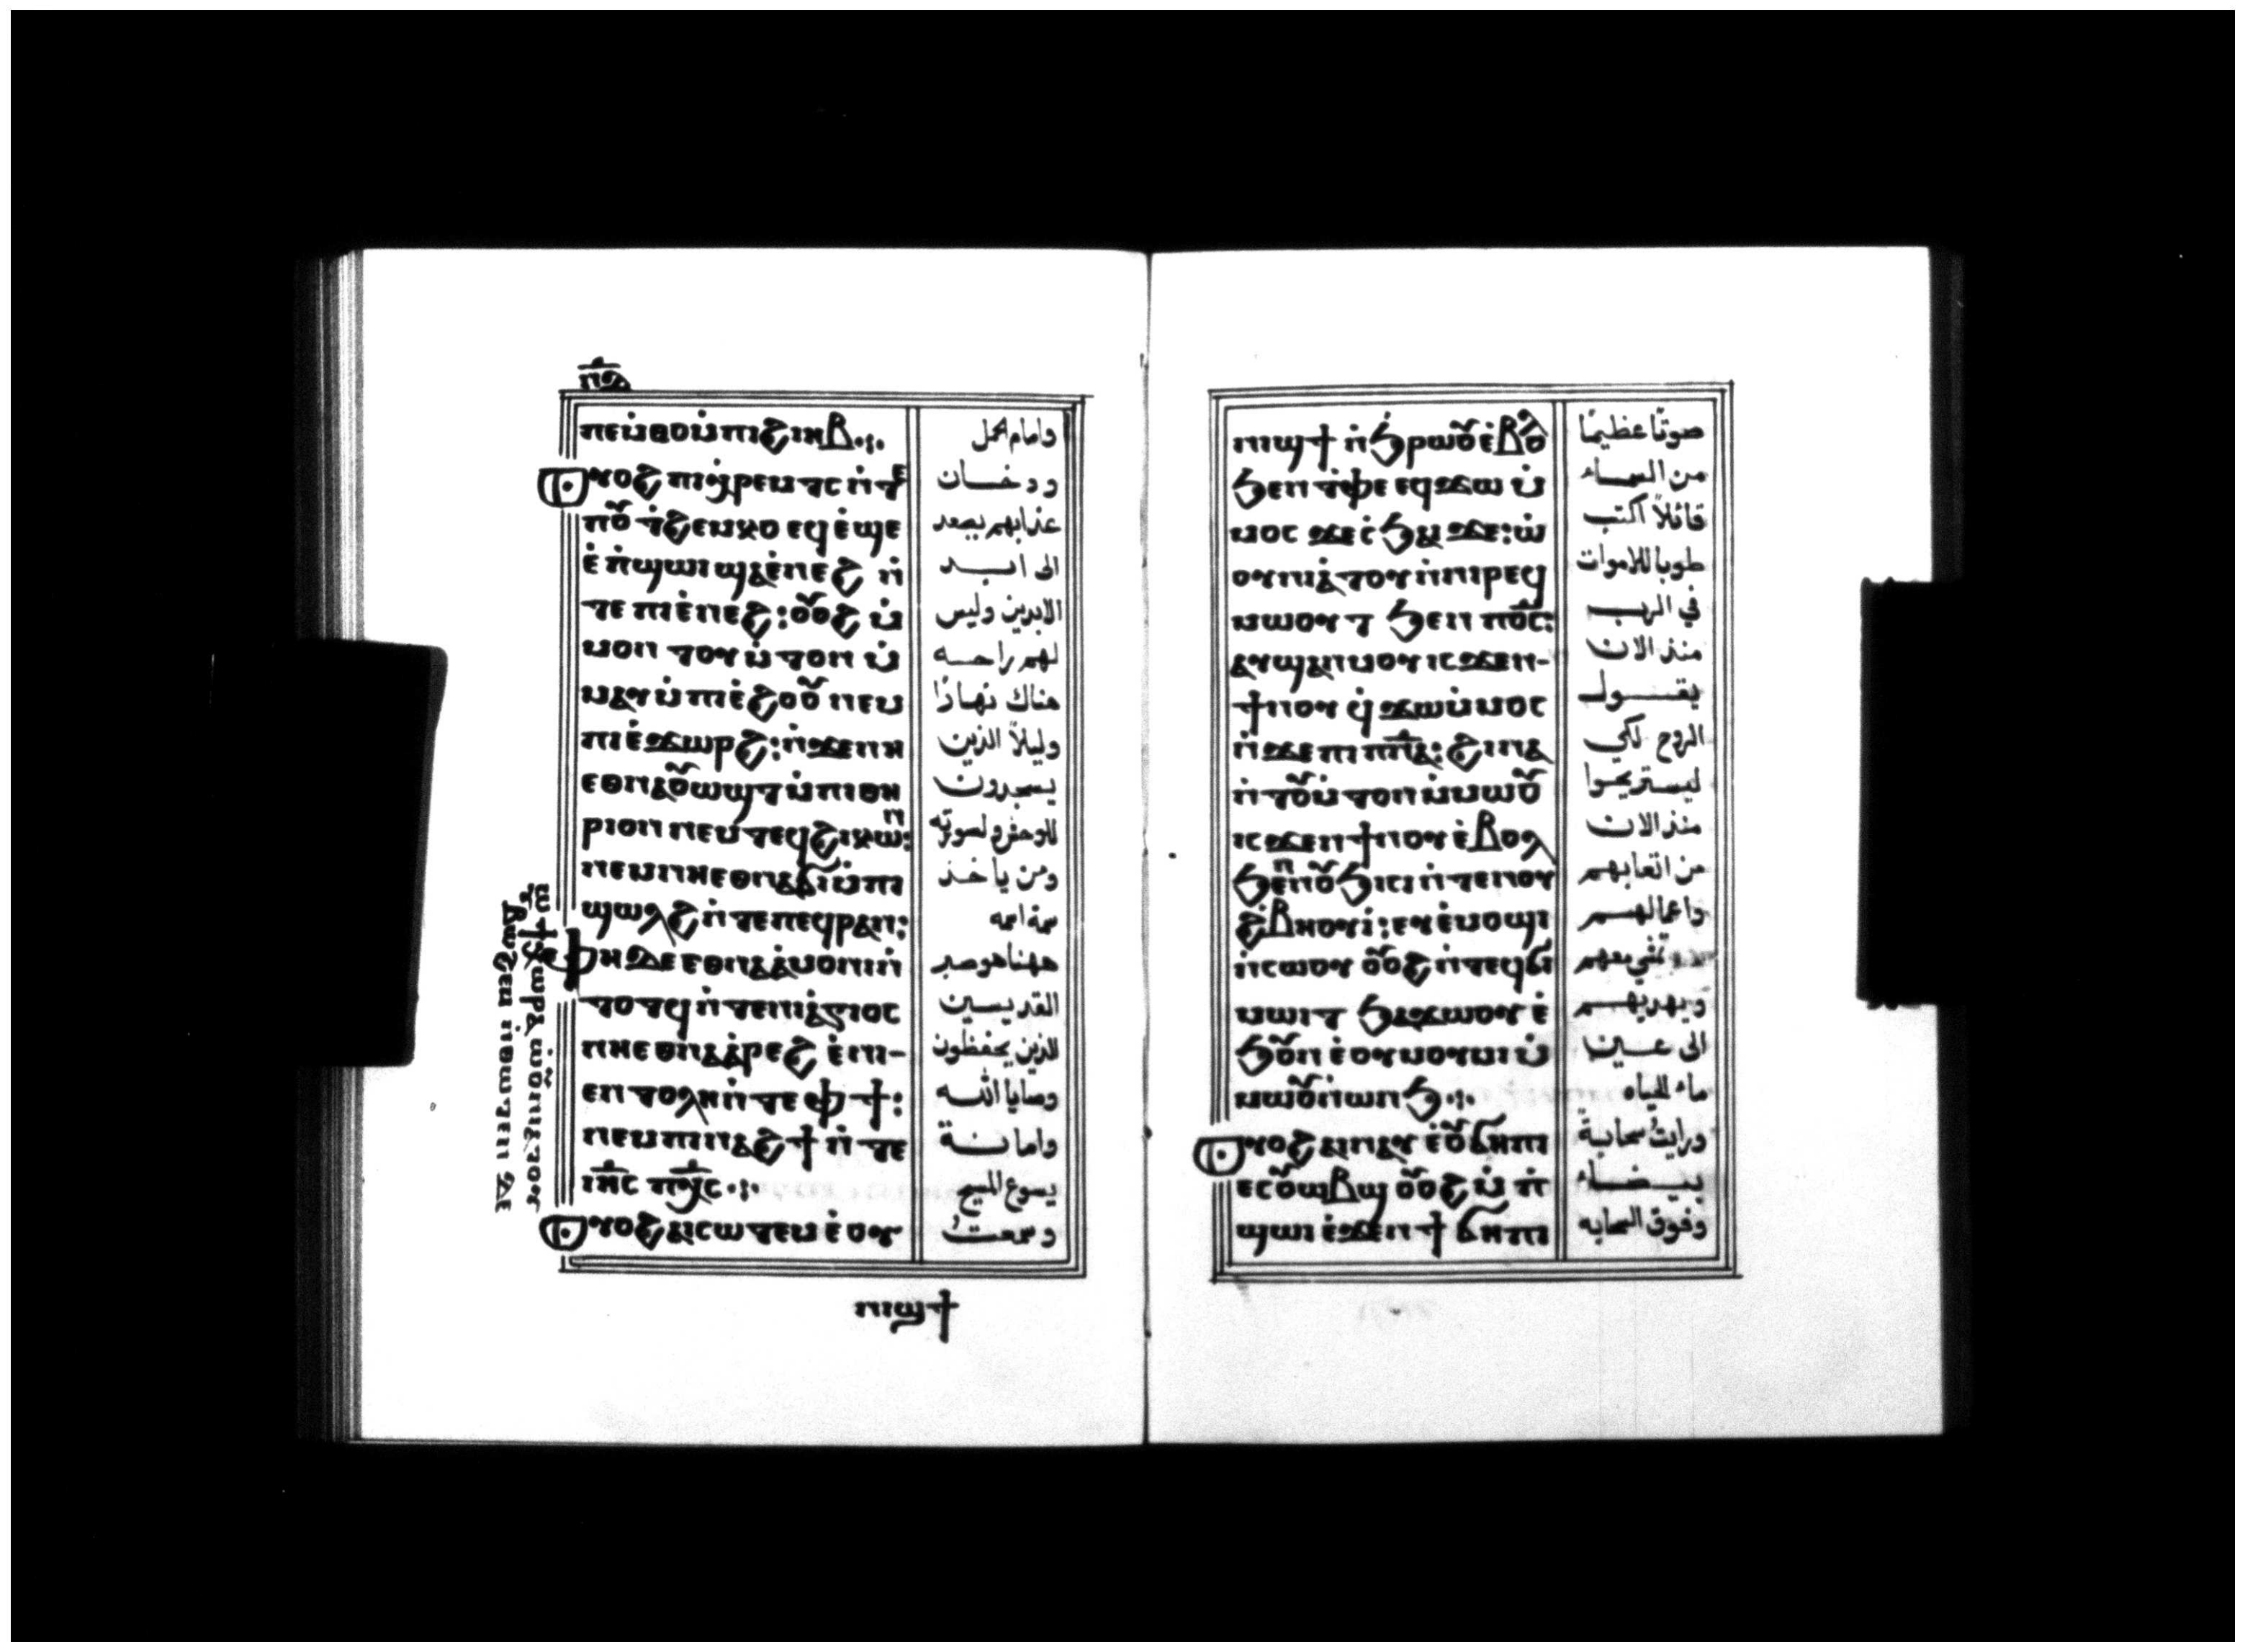 ⲡⲉⲙ̀ⲑⲟⲙ̀ⲡⲓϩⲓⲏⲃ:
ⲟⲩⲟϩ ⲡⲓⲭ̀ⲣⲉⲙⲧⲥ ⲛ̀ⲧⲉ
ⲡⲟⲩⲧ̀ϩⲉⲙⲕⲟ ⲉϥ̀ⲉϣⲉ
ⲉ̀ⲡ̀ϣⲱⲓ ϣⲁⲉ̀ⲛⲉϩ ⲛ̀
ⲧⲉ ⲡⲓⲉ̀ⲛⲉϩ: ⲟⲩⲟϩ ⲙ̀
ⲙⲟⲛ ⲧⲟⲩⲙ̀ⲧⲟⲛ ⲙ̀
ⲙⲁⲩ ⲙ̀ⲡⲓⲉ̀ϩⲟⲟⲩ ⲛⲉⲙ
ⲡⲓⲉ̀ϫⲱⲣϩ: ⲛ̀ϫⲉⲛⲏ
ⲉⲑⲛⲁⲟⲩⲱϣⲧ ⲙ̀ⲡⲓⲑⲏ
ⲣⲓⲟⲛ ⲛⲉⲙ ⲧⲉϥϩⲓⲕⲱⲛ:
ⲛⲉⲙⲛⲏⲉⲑⲛⲁϭⲓⲙ̀ⲡⲓ
ϣⲱⲗϩ ⲛ̀ⲧⲉⲡⲉϥⲣⲁⲛ:
ⲛ̀ⲧⲉⲛⲓⲁⲅⲓⲟⲥ
ⲛⲏⲉⲑⲛⲁⲁⲣⲉϩ ⲉ̀ⲛⲓ-
ⲉⲛⲧⲟⲗⲏ ⲛ̀ⲧⲉ ⲫϯ:
ⲛⲉⲙⲡⲓⲛⲁϩϯ ⲛ̀ⲧⲉ
ⲓⲏ̅ⲥ ⲡⲭ̅ⲥ:
ⲟⲩⲟϩⲁⲓⲥⲱⲧⲉⲙ ⲉ̀ⲟⲩ
ⲛⲓϣϯ
وامام الحمل
ودخان
عذابهم يصعد
الى ابد
الابدين وليس
لهم راحه
هناك نهارًا
وليلاً الذين
يسجدون
للوحش ولصورته
ومن ياخذ
سمة اسمه
ههنا هو صبر
القديسين
الذين يحفظون
وصايا الله
وامانة
يسوع المسيح
وسمعتُ
ⲛⲓϣϯ ⲛ̀ϧⲣⲱⲟⲩ ⲉ̀ⲃⲟⲗ
ϧⲉⲛ ⲧ̀ⲫⲉ ⲉϥϫⲱ ⲙ̀
ⲙⲟⲥ ϫⲉ ⲥ̀ϧⲁⲓ ϫⲉ: ⲱ̀
ⲟⲩⲛⲓⲁⲧⲟⲩ ⲛ̀ⲛⲓⲣⲉϥ
ⲙⲱⲟⲩⲧ ϧⲉⲛ ⲡⲟ̅ⲥ̅:
ⲁⲩϣⲁⲛⲙⲟⲩ ⲓⲥϫⲉⲛ-
ϯⲛⲟⲩ ϥ̀ϫⲱⲙ̀ⲙⲟⲥ
ⲛ̀ϫⲉⲡⲓⲡⲛ̅ⲁ̅: ϩⲓⲛⲁ
ⲛ̀ⲧⲟⲩⲙ̀ⲧⲟⲛⲙ̀ⲙⲱⲟⲩ
ⲓⲥϫⲉⲛϯⲛⲟⲩ ⲉ̀ⲃⲟⲗ
ϧⲉⲛⲛⲟⲩϧⲓⲥⲓ ⲛ̀ⲧⲉⲛⲟⲩ
ϩ̀ⲃⲏⲟⲩⲓ: ⲉⲩⲉ̀ⲙⲟϣⲓ
ⲛ̀ⲥⲱⲟⲩ ⲟⲩⲟϩ ⲛ̀ⲧⲉϥϭⲓ
ⲙⲱⲓⲧ ϧⲁϫⲱⲟⲩ ⲉ̀
ϧⲟⲩⲛ ⲉ̀ⲟⲩⲙⲟⲩⲙⲓ ⲙ̀
ⲙⲱⲟⲩ ⲛ̀ⲱⲛϧ:
ⲟⲩⲟϩⲁⲓⲛⲁⲩ ⲉ̀ⲟⲩϭⲏⲡⲓ
ⲉⲥⲟⲩⲱⲃϣ ⲟⲩⲟϩ ⲙ̀ⲡ̀
ϣⲱⲓ ⲉ̀ϫⲉⲛϯ ϭⲏⲡⲓ
صوتًا عظيمًا
من السماء
قائلاً اكتب
طوبا للاموات
في الرب
منذ الان
يقول
الروح لكي
ليستريحوا
منذ الان
من اتعابهم
واعمالهم
تمشي معهم
ويهديهم
الى عين
ماء الحياه
ورايتُ سحابةً
بيضاء
وفوق السحابه